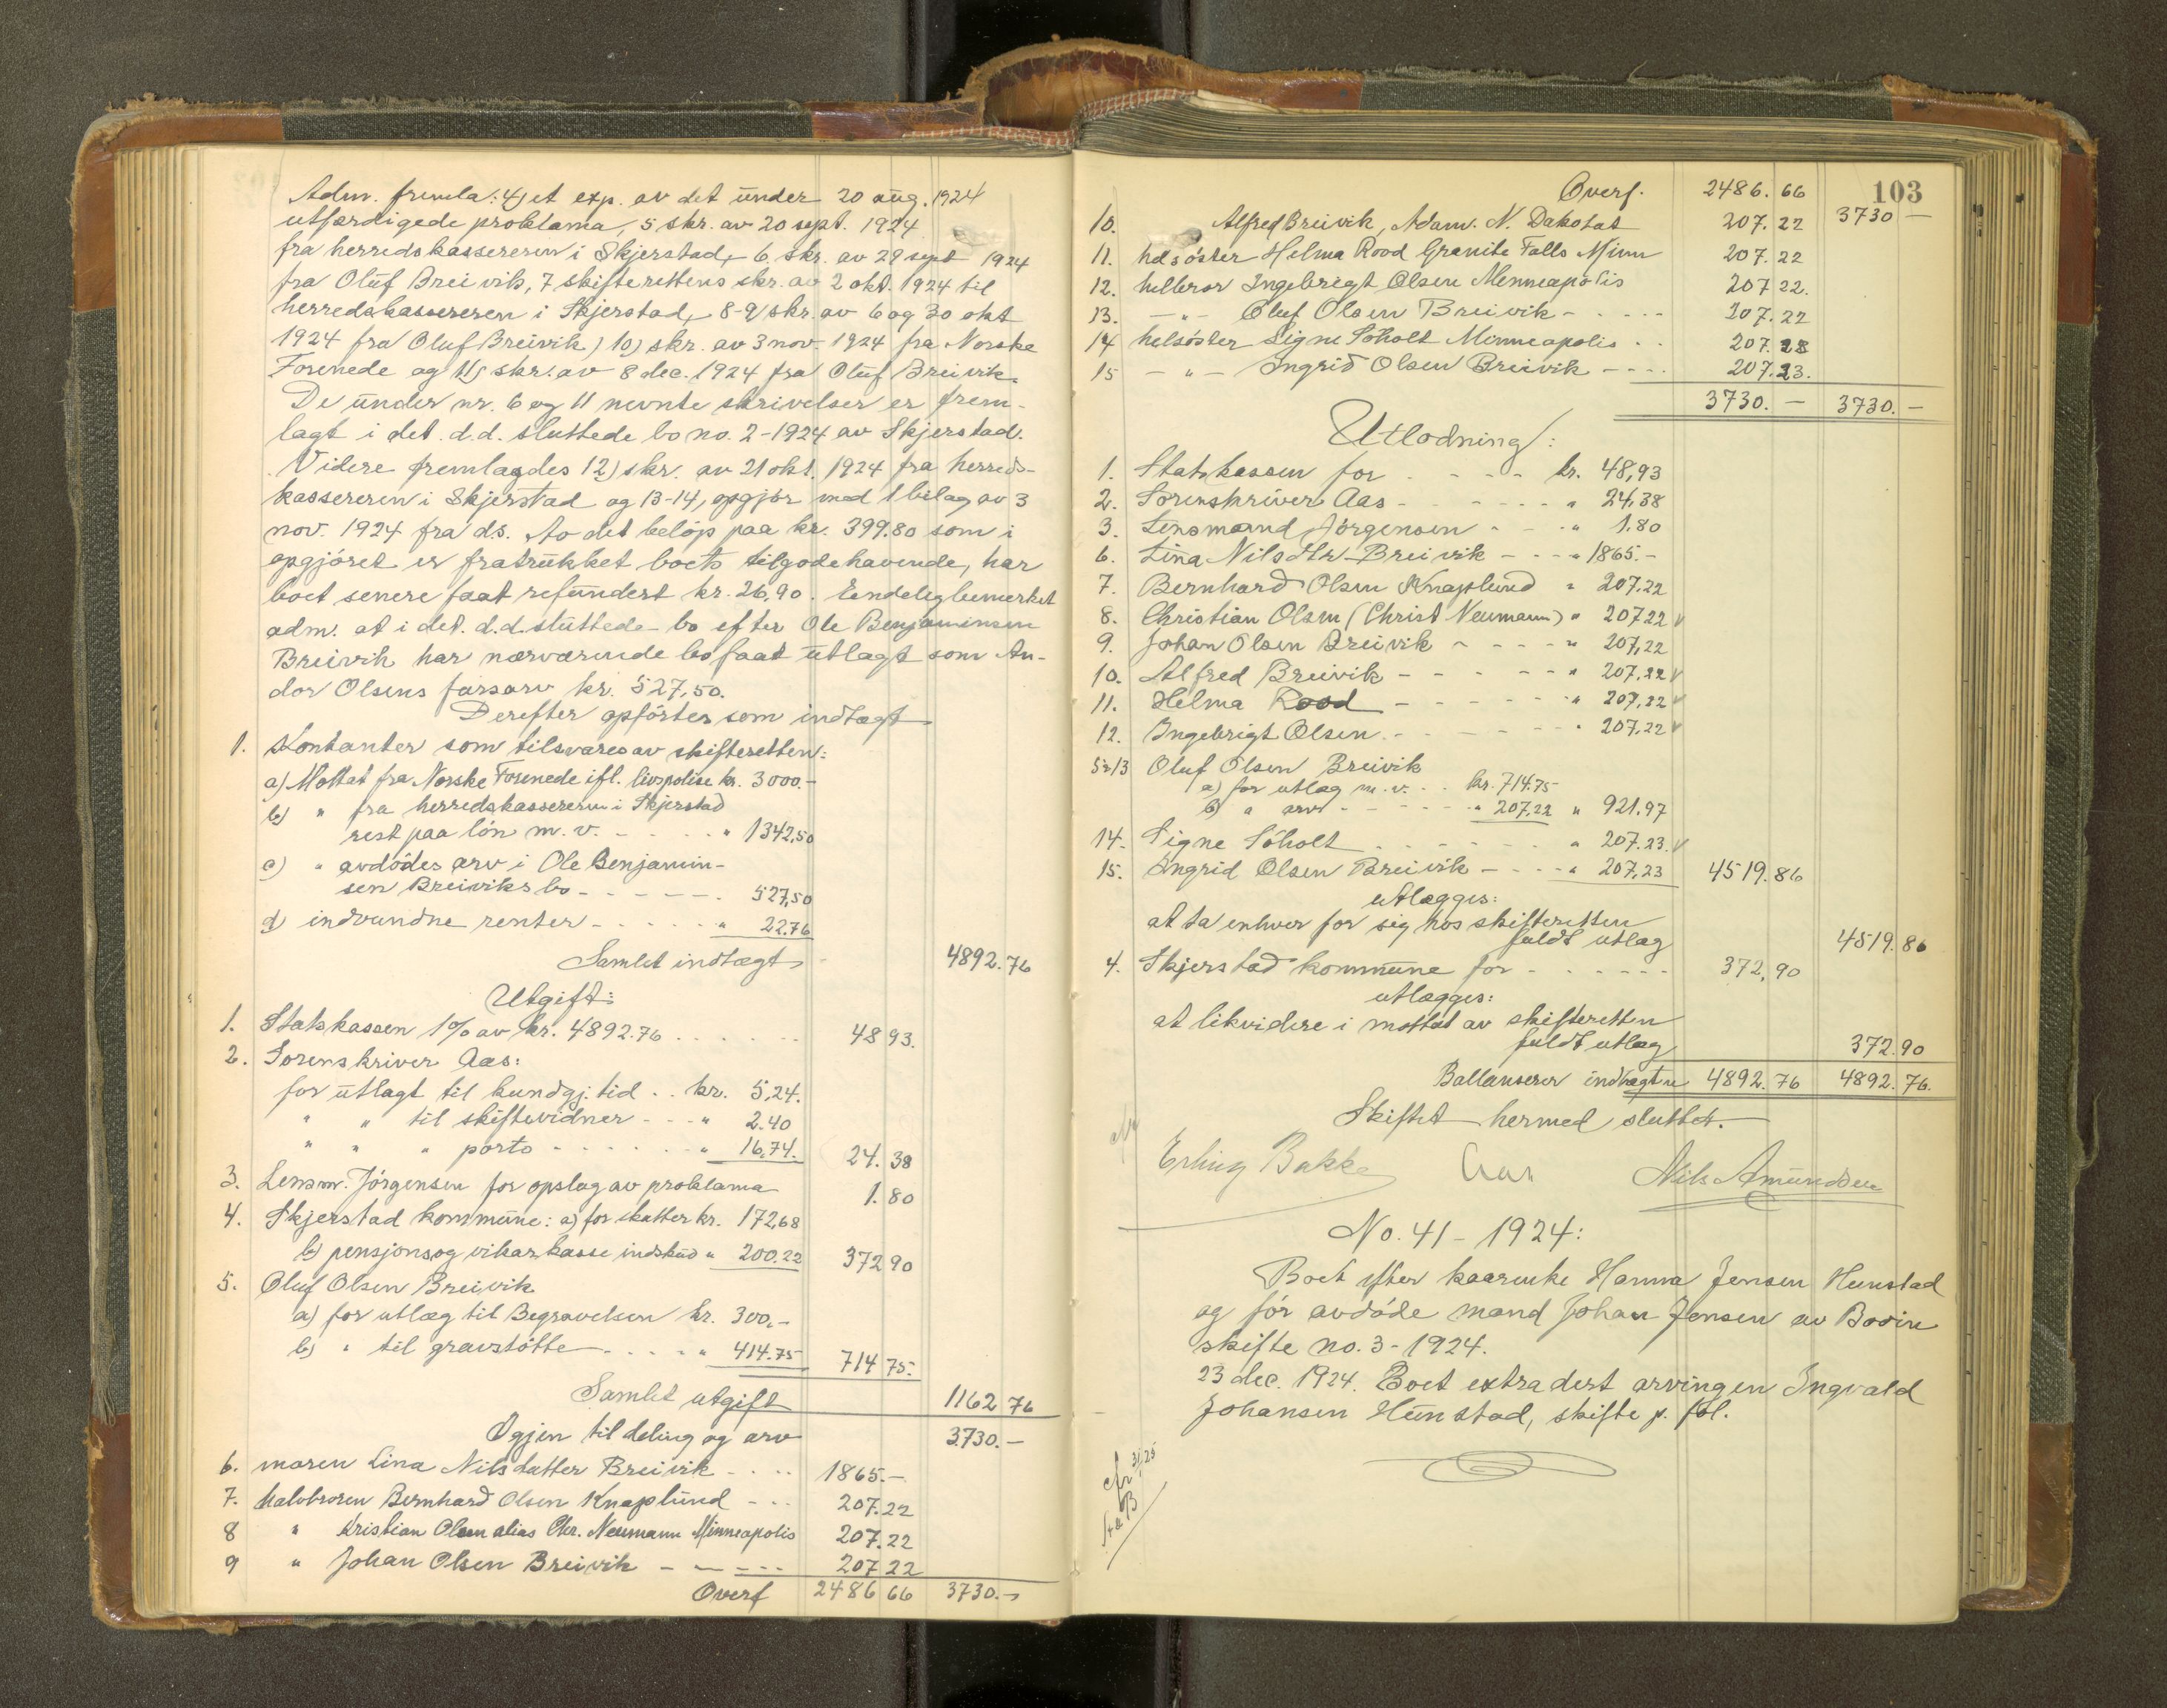 Adm. fremla: 4) et exp. av det under 20 aug. 1924
utfærdigede proklama, 5 skr. av 20 sept. 1924
fra herredskassereren i Skjerstad, 6 skr. av 29 sept 1924
fra Oluf Breivik, 7 skifterettens skr. av 2 okt. 1924 til
herredskassereren i Skjerstad, 8-9) skr. av 6 og 30 okt
1924 fra Oluf Breivik, 10) skr. av 3 nov. 1924 fra Norske
Forenede og 11) skr. av 8 dec. 1924 fra Oluf Breivik.
De under nr. 6 og 11 nevnte skrivelser er frem-
lagt i det d.d. sluttede bo no. 2-1924 av Skjerstad.
Videre fremlagdes 12) skr. av 21 okt. 1924 fra herreds-
kassereren i Skjerstad og 13-14, opgjør med 1 bilag av 3
nov. 1924 fra ds. Av det beløp paa kr. 399.80 som i
opgjøret er fratrukket boets tilgodehavende, har
boet senere faat refundert kr. 26,90. Endelig bemerket
adm. at i det d.d. sluttede bo efter Ole Benjaminsen
Breivik har nærværende bo faat utlagt som An-
dor Olsens farsarv kr. 527,50.
Derefter opførtes som indtægt
1. Kontanter som tilsvares av skifteretten:
a) Mottat fra Norske Forenede ifl. livspolise kr. 3000.-
b) " fra herredskassereren i Skjerstad
rest paa løn m.v. - - - - " 1342,50
c) " avdødes arv i Ole Benjamin-
sen Breiviks bo - - - - - 527,50
d) indvundne renter - - - - - " 22.76
Samlet indtægt 4892.76
Utgift:
1. Statskassen 1% av kr. 4892.76 . . . . . . 48 93.
2. Sorenskriver Aas:
for utlagt til kundgj. tid . . kr. 5,24.
" " til skiftevidner - - - " 2.40
" " " porto - - - - - - " 16,74. 24.38
3. Lensm. Jørgensen for opslag av proklama 1.80
4. Skjerstad kommune: a) for skatter kr. 172,68
b) pensjons og vikarkasse indskud " 200.22 372 90
5. Oluf Olsen Breivik
a) for utlæg til Begravelsen kr. 300.-
b) " til gravstøtte - - - - " 414.75 714 75.
Samlet utgift 1162 76
Igjen til deling og arv 3730.-
6. moren Lina Nilsdatter Breivik - - - 1865.-
7. halvbroren Bernhard Olsen Knaplund - - - 207.22
8 " Kristian Olsen alias Chr. Neumann Minneapolis 207.22
9 " Johan Olsen Breivik - - - - - 207 22
Overf 2486 66 3730.-
103
Overf. 2486.66 3730 -
10. Alfred Breivik, Adam. N. Dakota 207.22
11. helsøster Helma Rood Granite Falls Minn 207.22
12. helbror Ingebrigt Olsen Menneapolis 207 22.
13. - " - Oluf Olsen Breivik - - - - - 207.22
14 helsøster Signe Söholt Minneapolis . . 207.23
15 - " - Ingrid Olsen Breivik - - - - 207.23.
3730.- 3730.-
Utlodning:
1. Statskassen for - - - - kr. 48,93
2. Sorenskriver Aas - - - - - - " 24,38
3. Lensmand Jørgensen - - - " 1.80
6. Lina Nilsdtr Breivik - - - " 1865.-
7. Bernhard Olsen Knaplund " 207,22
8. Christian Olsen (Christ Neumann) " 207 22 v
9. Johan Olsen Breivik - - - - " 207,22
10. Alfred Breivik - - - - - - " 207,22 v
11. Helma Rood - - - - - - " 207,22 v
12. Ingebrigt Olsen - - - - - - " 207,22 v
5&13 Oluf Olsen Breivik
a) for utlæg m.v. . . kr. 714.75
b) " arv - - - - - - " 207,22 " 921.97
14. Signe Söholt - - - - - - " 207.23. v
15. Ingrid Olsen Breivik - - - - " 207,23 4519.86
utlægges:
at ta enhver for sig hos skifteretten
fuldt utlæg 4519.86
4. Skjerstad kommune for - - - - - - 372,90
utlægges:
at likvidere i mottat av skifteretten
fuldt utlæg 372.90
Ballanserer indtægtene 4892.76 4892.76.
Skiftet hermed sluttet.
Erling Bakke Aas Nils Amundsen
No. 41 - 1924:
Boet efter kaarenke Hanna Jensen Hunstad
og før avdøde mand Johan Jensen av Bodin
skifte no. 3-1924.
23 dec. 1924. Boet extradert arvingen Ingvald
Johansen Hunstad, skifte p. fol.